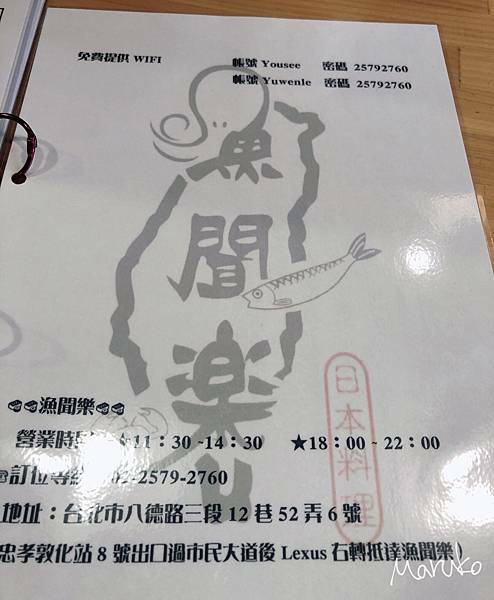 免費提供 WIFI
帳號 Yousee 密碼 25792760
帳號 Yuwenle 密碼 25792760
漁
聞
楽
日本料理
漁聞樂
營業時間 ★11：30 ~14：30 ★18：00 ~ 22：00
訂位專線 02-2579-2760
地址：台北市八德路三段 12 巷 52 弄 6 號
忠孝敦化站 8 號出口過市民大道後 Lexus 右轉抵達漁聞樂）
Maruko